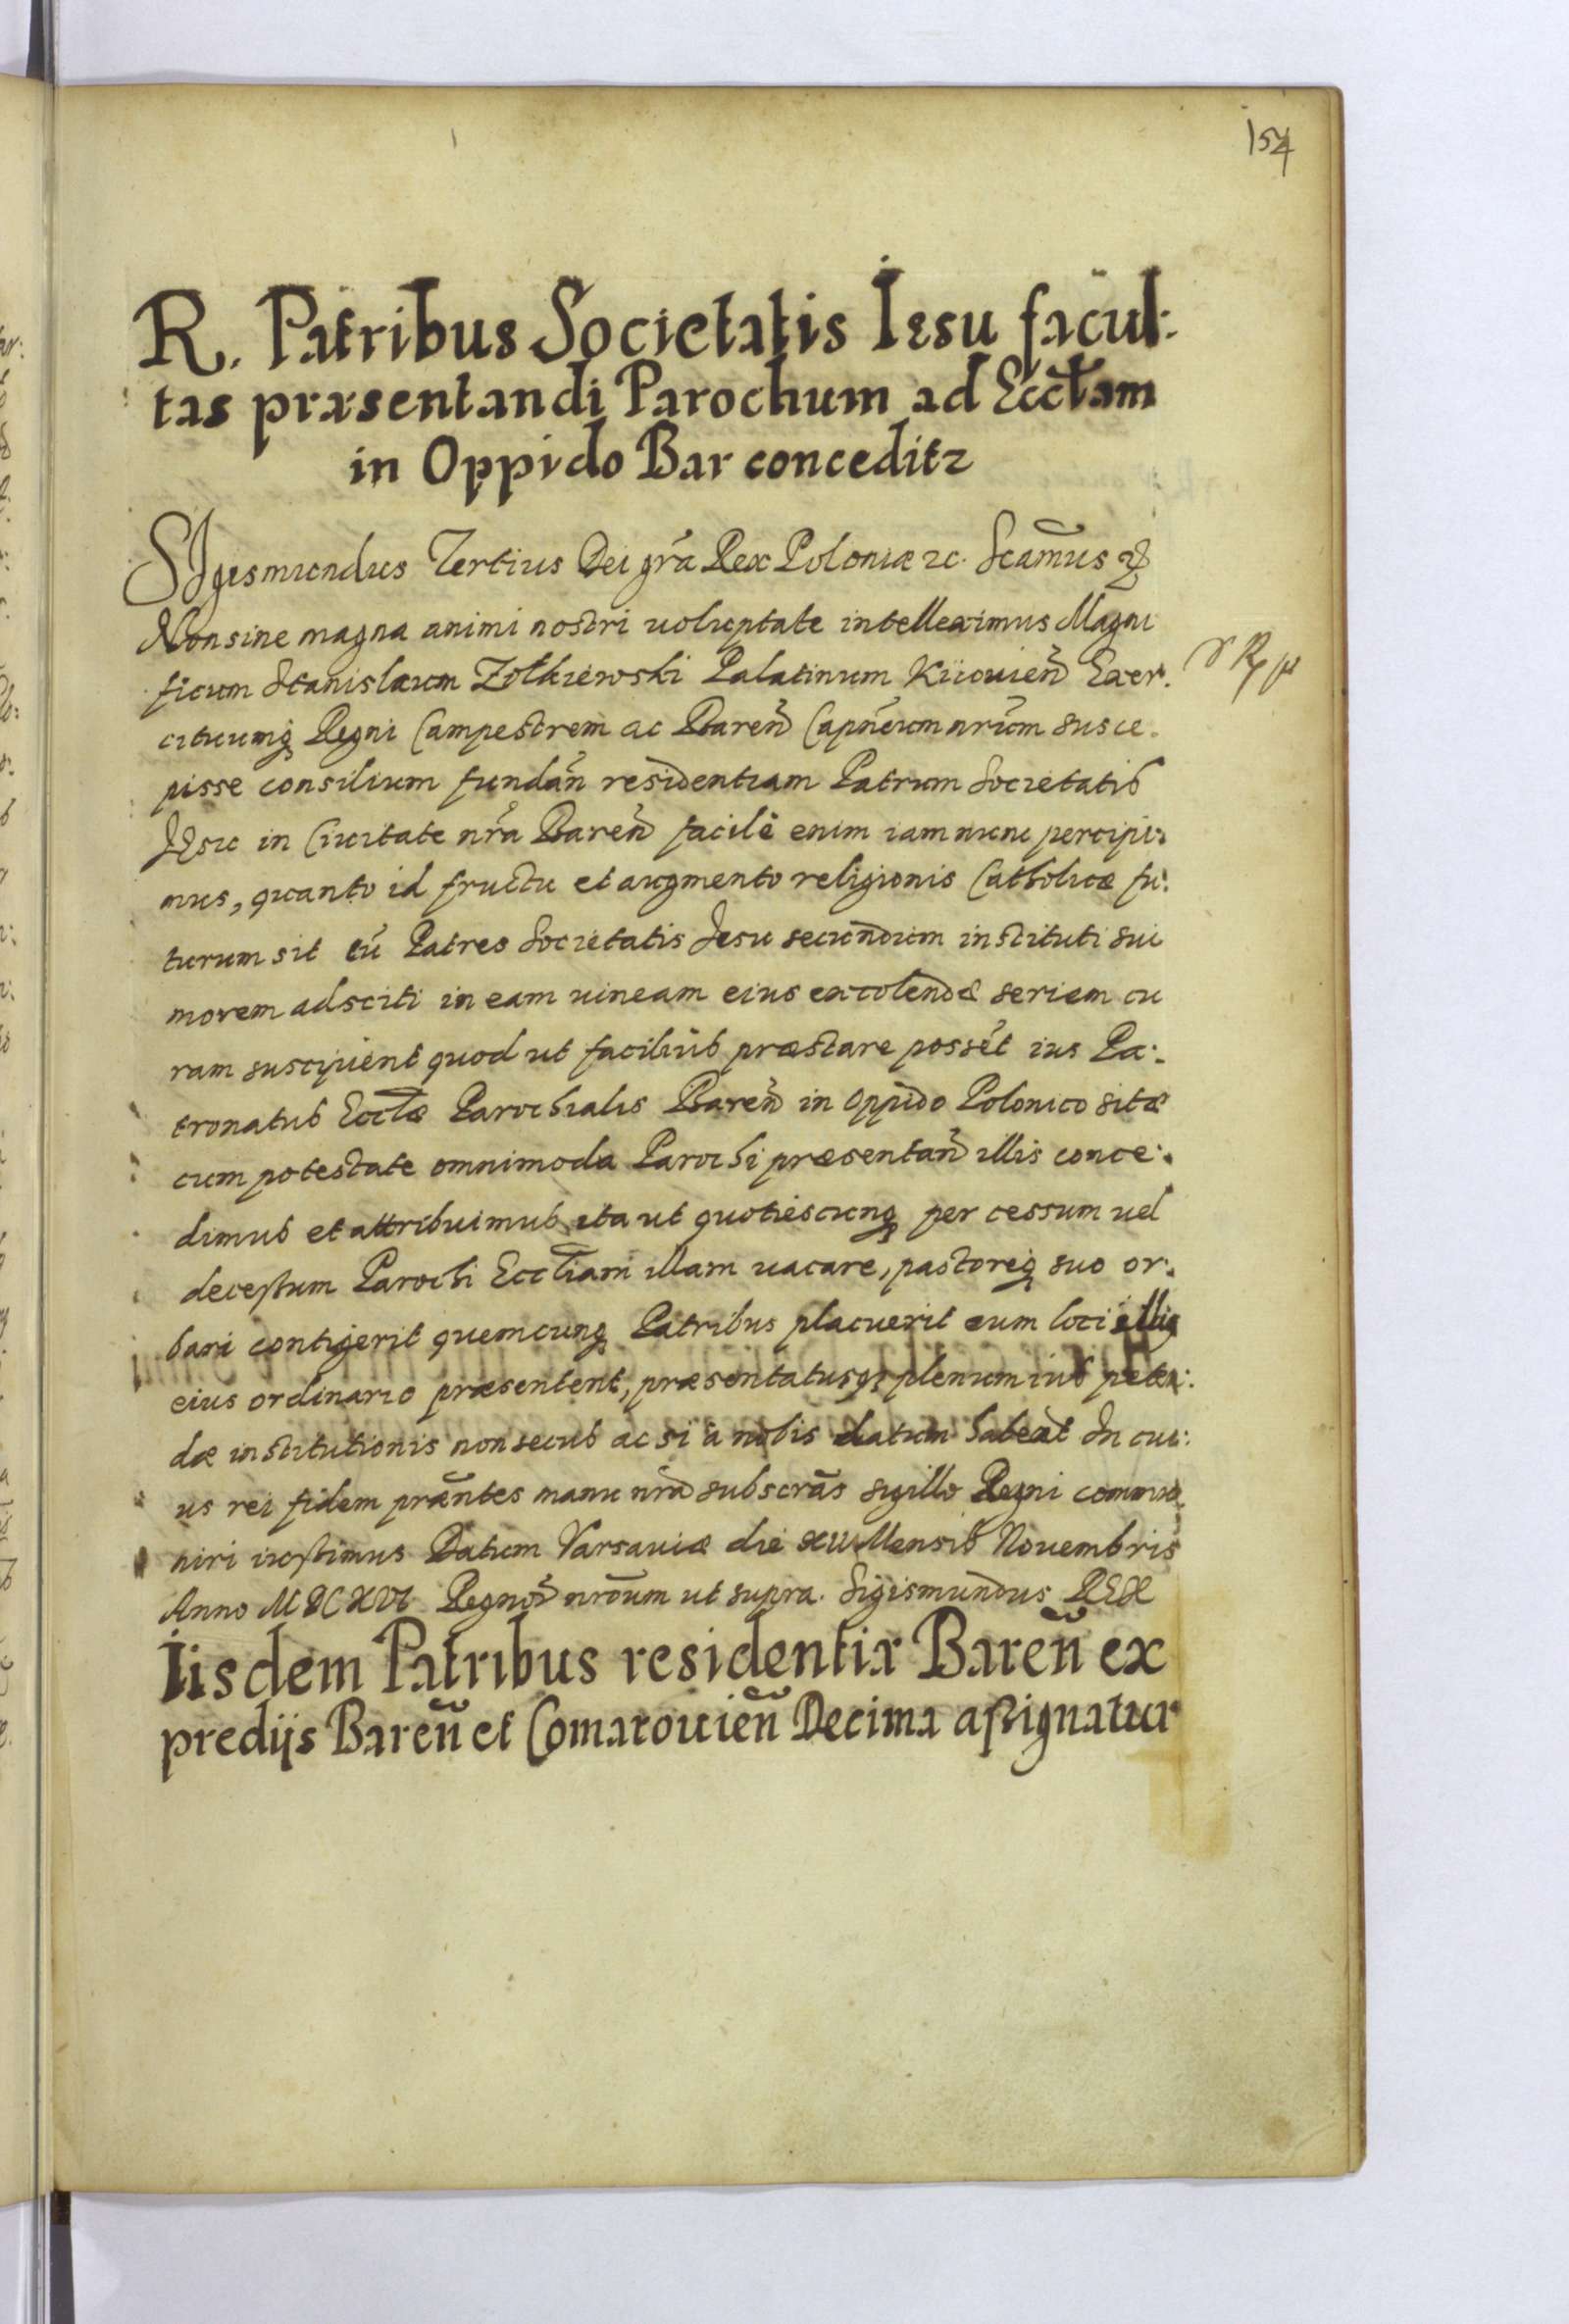 154
R. Patribus Societatis Iesu facul:
tas præsentandi Parochum ad Eccłam
in Oppido Bar conceditr
SIgismundus Tertius Dei gr̃a Rex Poloniæ &c.
Non sine magna animi nostri uoluptate intelleximus Magni
ficum Stanislaum Zołkiewski Palatinum Kiiouień Exer.
cituumq̃ Regni Campestrem ac Bareń Capñeum nrũm susce.
pisse consilium fundañ residentiam Patrum Societatis
Jesu in Ciuitate nr̃a Bareń facilè enim iam nunc percipi:
mus, quanto id fructu et augmento religionis Catholicæ fu:
turum sit cũ Patres Societatis Jesu secundum instituti sui
morem adsciti in eam uineam eius excolendæ seriem cu
ram suscipient quod ut facilius præstare possẽt ius Pa:
tronatus Eccłæ Parochialis Bareń in Oppido Polonico sitæ
cum potestate omnimoda Parochi præsentań illis conce:
dimus et attribuimus ita ut quotiescunq̃ per cessum uel
decessum Parochi Eccłiam illam uacare, pastoreq̃ suo or:
bari contigerit quemcunq̃ Patribus placuerit eum loci illiq
eius ordinario præsentent, præsentatusq̃ plenum ius peten:
dæ institutionis non secus ac si à nobis datum habeat In cui:
us rei fidem præñtes manu nr̃a subscrãs sigillo Regni commu
niri iussimus Datum Varsauiæ die Mensis Nouembris
Anno MDCXVI Regnoř nrõum ut supra. Sigismundus REX
Iisdem Patribus residentiæ Bareñ ex
predijs Bareñ et Comarouieñ Decima assignatur